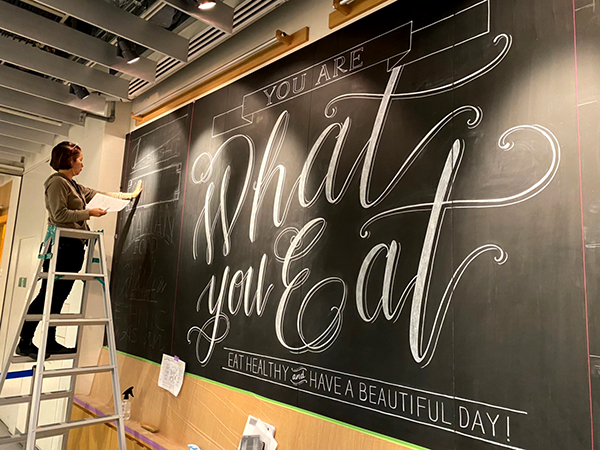 YOU ARE
What
you Eat
EAT HEALTHY and HAVE A BEAUTIFUL DAY!